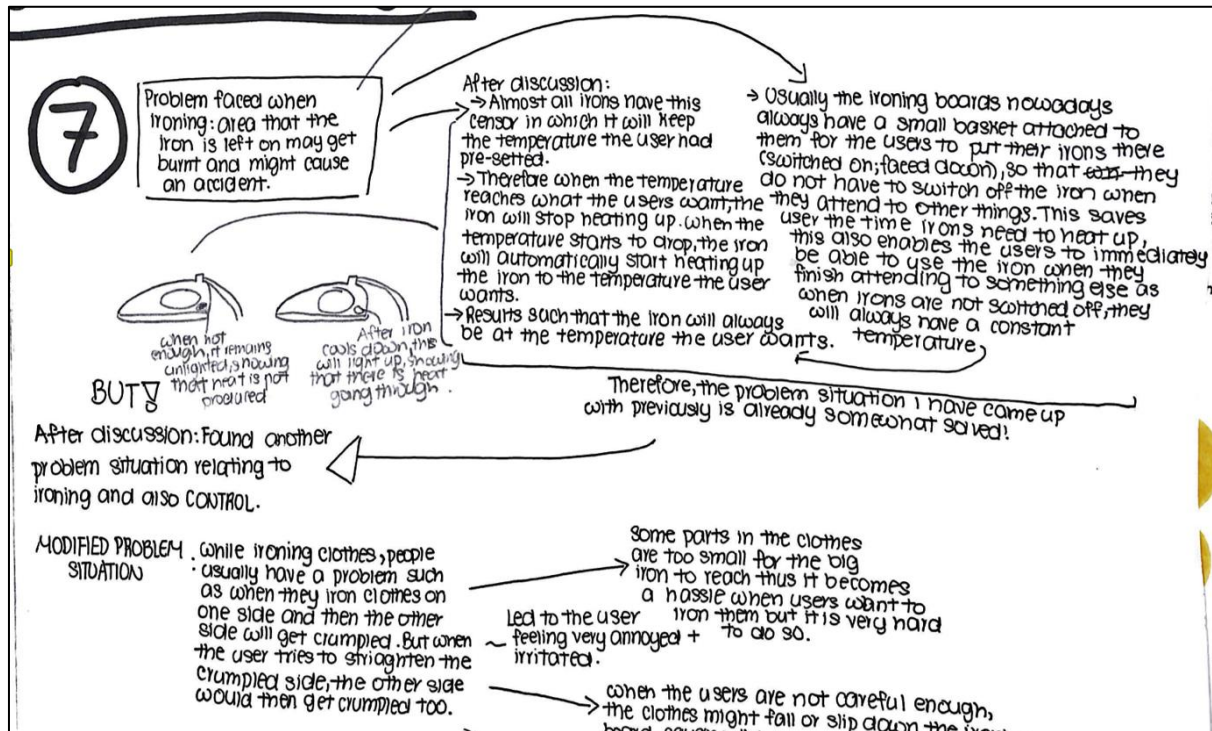 7
Problem faced when
ironing: area that the
iron is left on may get
burnt and might cause
an accident.
After discussion:
→ Almost all irons have this
censor in which it will keep
the temperature the user had
pre-setted.
→ Therefore when the temperature
reaches what the users want, the
iron will stop heating up. when the
temperature starts to drop, the iron
will automatically start heating up
the iron to the temperature the user
wants.
→ Results such that the iron will always
be at the temperature the user wants.
→ Usually the ironing boards nowadays
always have a small basket attached to
them for the users to put their irons there
(switched on; faced down), so that they
do not have to switch off the iron when
they attend to other things. This saves
user the time irons need to heat up,
this also enables the users to immediately
be able to use the iron when they
finish attending to something else as
when irons are not switched off, they
will always have a constant
temperature
when hot
enough, it remains
unlighted, showing
that heat is not
procured
After iron
cools down, this
will light up, showing
that there is heat
going through.
BUT!
Therefore, the problem situation i have came up
with previously is already somewhat solved!
After discussion: Found another
problem situation relating to
ironing and also CONTROL.
MODIFIED PROBLEM
SITUATION
: while ironing clothes, people
usually have a problem such
as when they iron clothes on
one side and then the other
side will get crumpled. But when
the user tries to striaghten the
crumpled side, the other side
would then get crumpled too.
Led to the user
feeling very annoyed +
irritated.
some parts in the clothes
are too small for the big
iron to reach thus it becomes
a hassle when users want to
iron them but it is very hard
to do so.
when the users are not careful enough,
the clothes might fall or slip down the
board